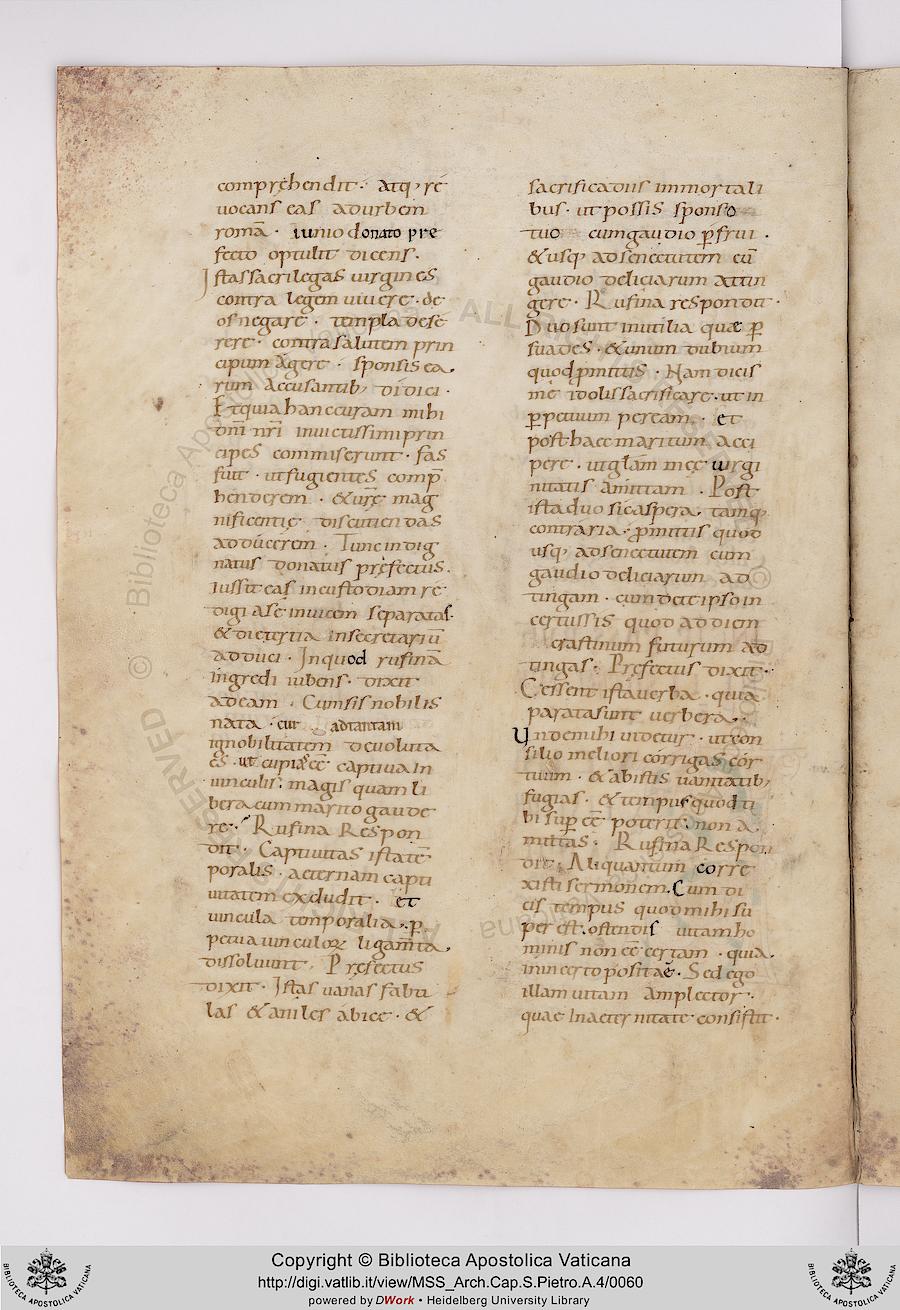 comprehendit · atq; re
uocans eas ad urbem
romā · iunio donato pre
fecto optulit dicens ·
Istas sacrilegas uirgines
contra legem uiuere · de
os negare · templa dese
rere · contra salutem prin
cipum agere · sponsis ea
rum accusantib; didici ·
Et quia hanc curam mihi
dn̄i nr̄i inuictissimi prin
cipes commiserunt · fas
fuit · ut fugientes comp̄
henderem · & ur̄e mag
nificentię discutiendas
adducerem · Tunc indig
natus donatus pręfectus ·
iussit eas in custodiam re
digi a se inuicem separatas ·
& die tertia in secretariū
adduci · In quod rufinā
ingredi iubens · dixit
ad eam · Cum sis nobilis
nata · cur ad tantam
ignobilitatem deuoluta
es · ut cupias ēē captiua in
uinculis · magis quam li
bera cum marito gaude
re · Rufina Respon
dit · Captiuitas ista tē
poralis · aeternam capti
uitatem excludit · et
uincula temporalia · ꝑ
petua uinculoꝝ ligam̄ta
dissoluunt · Pręfectus
dixit · Istas uanas fabu
las & aniles abice · &
sacrifica diis immortali
bus · ut possis sponso
tuo cum gaudio ꝑfrui ·
& usq; ad senectutem cū
gaudio deliciarum attin
gere · Rufina respondit ·
Duo sunt inutilia quae ꝑ
suades · & unum dubium
quod ꝓmittis · Nam dicis
me idolis sacrificare · ut in
ꝑpetuum peream · et
post haec maritum acci
pere · ut gl̄am meę uirgi
nitatis amittam · Post
ista duo sic aspera · tamq;
contraria · ꝓmittis quod
usq; ad senectutem cum
gaudio deliciarum ad
tingam · cum de te ipso in
certus sis quod ad diem
crastinum futurum ad
tingas · Pręfectus dixit ·
Cessent ista uerba · quia
parata sunt uerbera ·
Unde mihi uidetur · ut con
silio meliori corrigas cor
tuum · & ab istis uanitatib;
fugias · & tempus quod ti
bi sup̄ ēē poterit · non a
mittas · Rufina Respon
dit · Aliquantum corre
xisti sermonem · Cum di
cis tempus quod mihi su
per est · ostendis uitam ho
minis non ēē certam · quia
in incerto posita ē · Sed ego
illam uitam amplector ·
quae in aeternitate consistit ·
Copyright © Biblioteca Apostolica Vaticana
http://digi.vatlib.it/view/MSS_Arch.Cap.S.Pietro.A.4/0060
powered by DWork • Heidelberg University Library